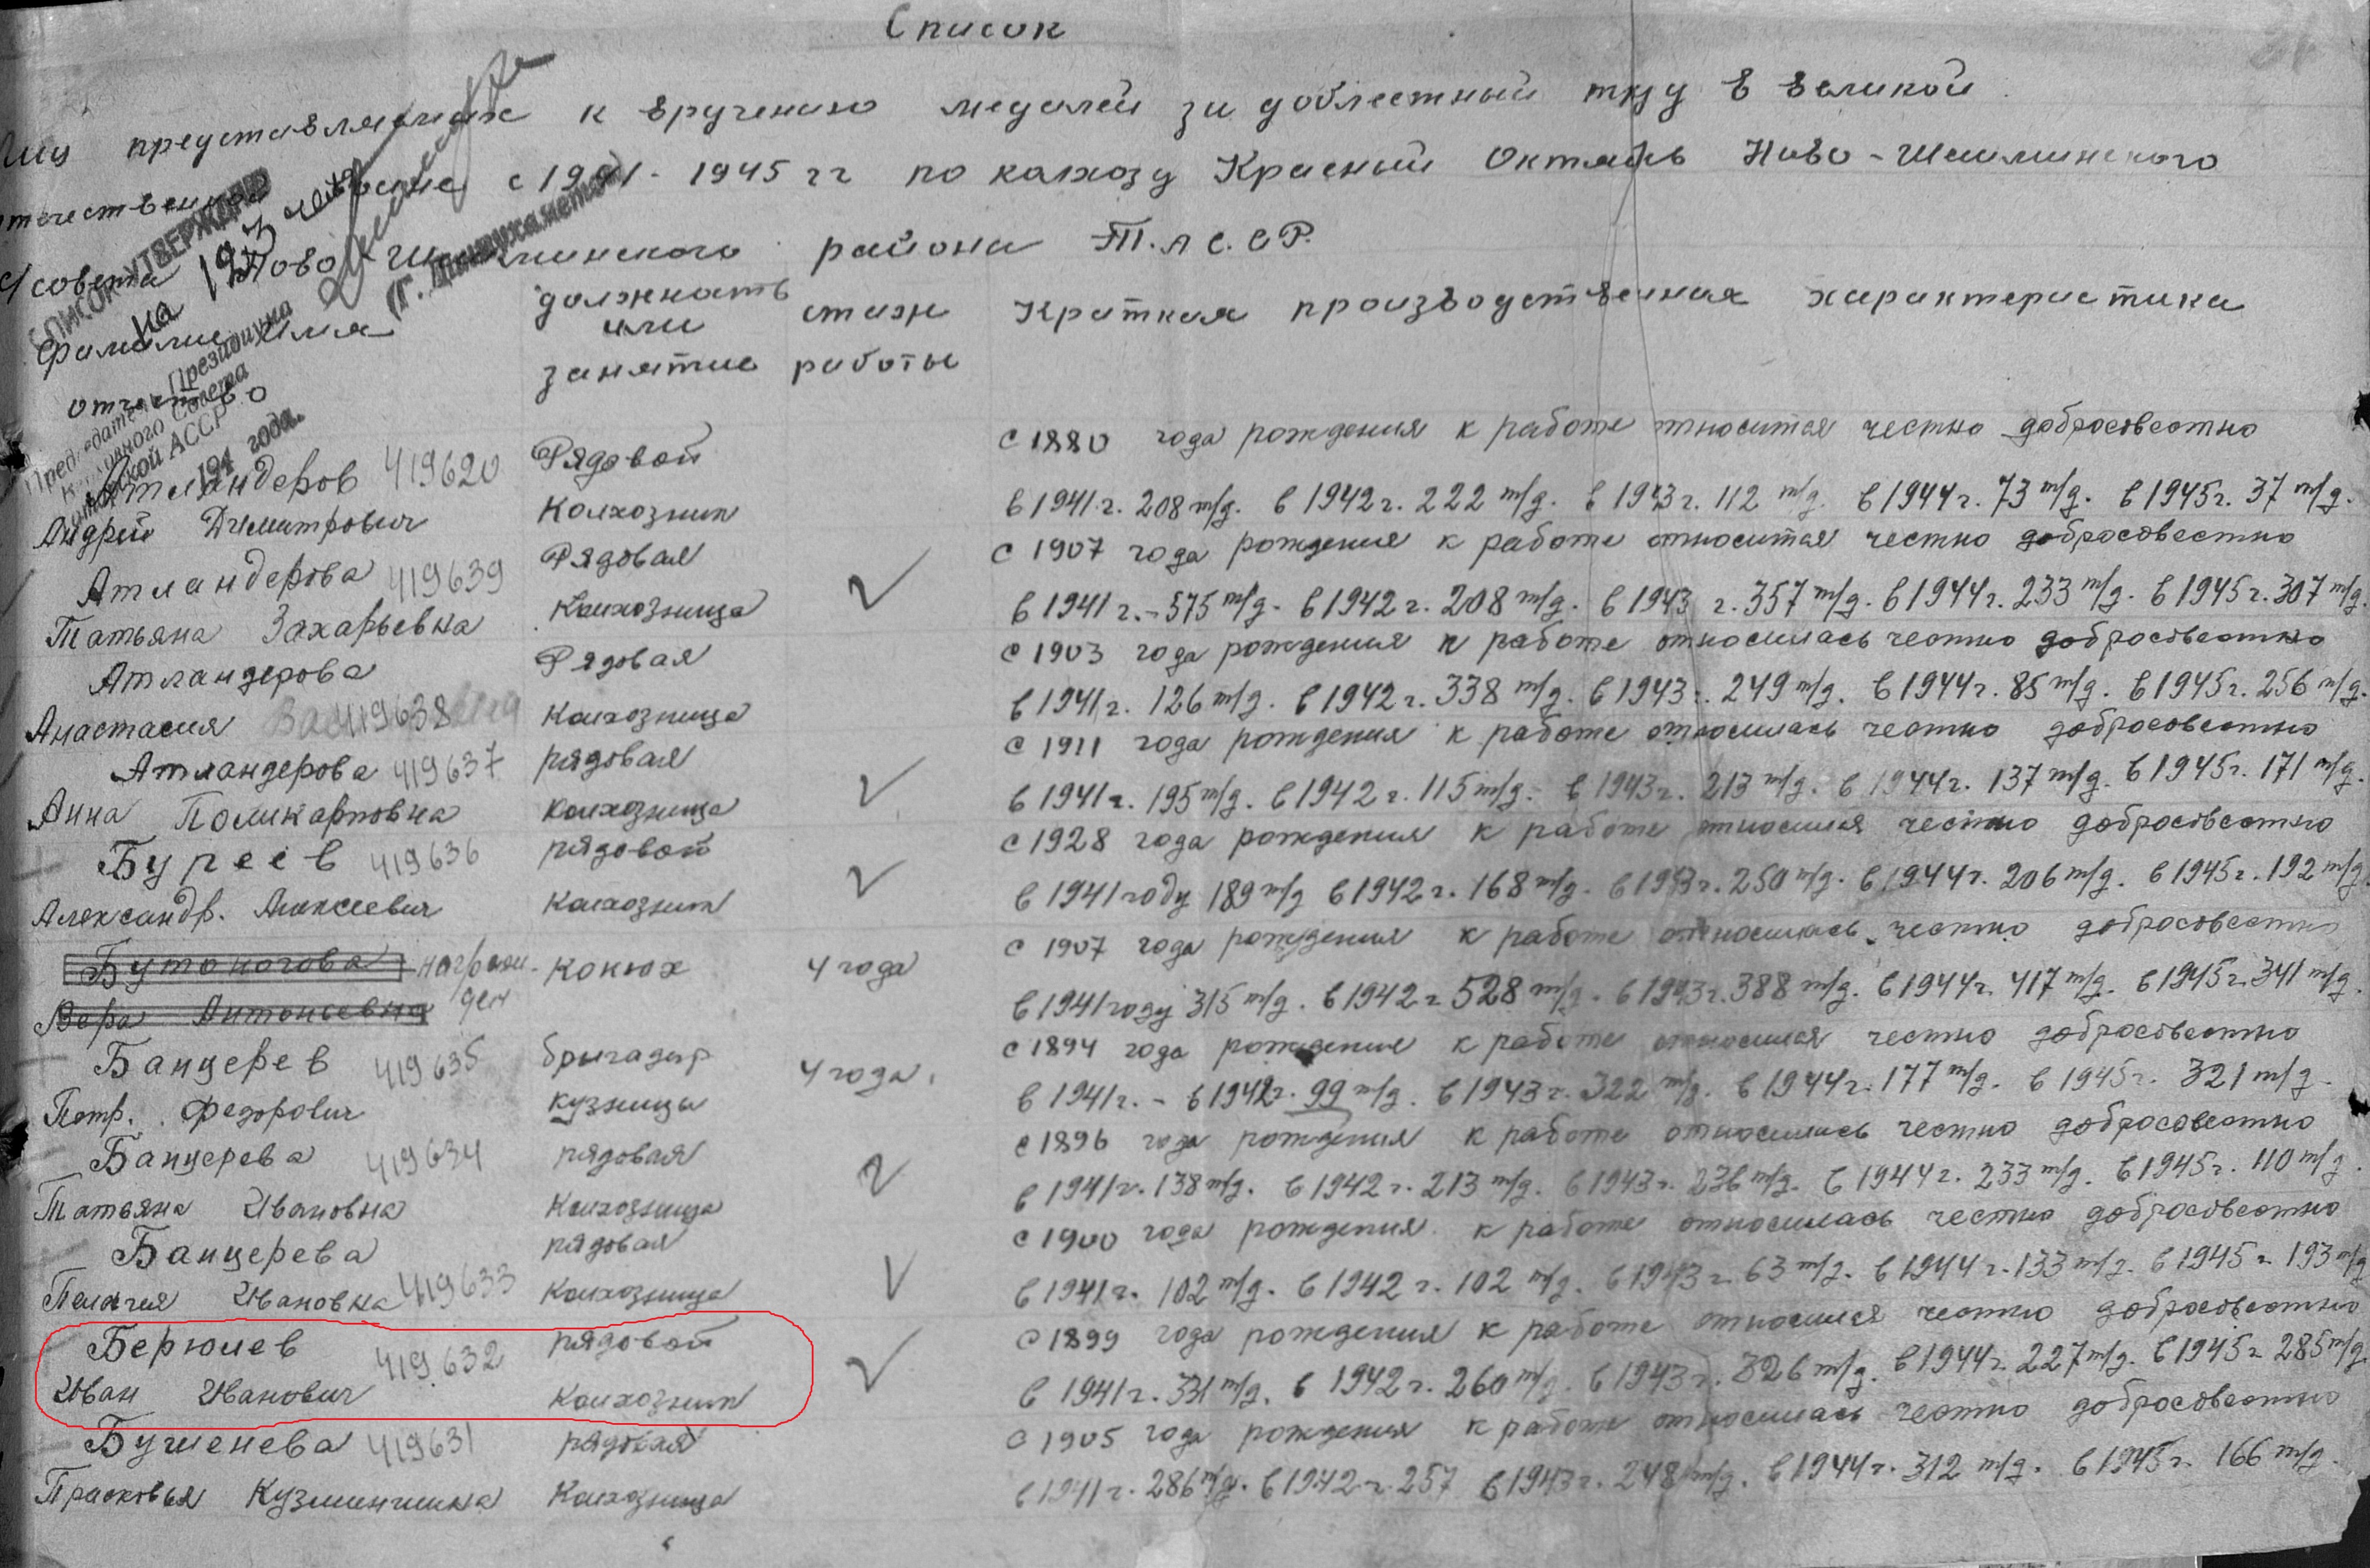 Список
Лиц представляемых к вручению медалей за доблестный труд в великой
отечественной войне с 1941-1945 гг по колхозу Красный Октябрь Ново-Шешминского
с/совета Ново-Шешминского района Т.А С.С Р.
СПИСОК УТВЕРЖДАЮ
на 193
Председатель Президиума
Верховного Совета
Татарской АССР
(Г. Динмухаметов)
194 года.
Фамилие Имя
отчество
должность
или
занятие
стаж
работы
Краткая производственная характеристика
Атландеров 419620 Рядовой с 1880 года рождения к работе относится честно добросовестно
Андрей Дмитрович Колхозник в 1941 г. 208 т/д. в 1942 г. 222 т/д. в 1943 г. 112 т/д. в 1944 г. 73 т/д. в 1945 г. 37 т/д.
Атландерова 419639 Рядовая с 1907 года рождения к работе относится честно добросовестно
Татьяна Захарьевна Колхозница в 1941 г. - 575 т/д. в 1942 г. 208 т/д. в 1943 г. 357 т/д. в 1944 г. 233 т/д. в 1945 г. 307 т/д.
Атландерова Рядовая с 1903 года рождения к работе относилась честно добросовестно
Анастасия 419638 Колхозница в 1941 г. 126 т/д. в 1942 г. 338 т/д. в 1943 г. 249 т/д. в 1944 г. 85 т/д. в 1945 г. 256 т/д.
Атландерова 419637 рядовая с 1911 года рождения к работе относилась честно добросовестно
Анна Поликарповна колхозница в 1941 г. 195 т/д. в 1942 г. 115 т/д. в 1943 г. 213 т/д. в 1944 г. 137 т/д. в 1945 г. 171 т/д.
Буреев 419636 рядовой с 1928 года рождения к работе относился честно добросовестно
Александр. Алексеевич колхозник в 1941 году 189 т/д в 1942 г. 168 т/д. в 1943 г. 250 т/д. в 1944 г. 206 т/д. в 1945 г. 192 т/д.
Бутоногова награжден конюх 4 года с 1907 года рождения к работе относилась честно добросовестно
Вера Антоньевна в 1941 году 315 т/д. в 1942 г 528 т/д. в 1943 г. 388 т/д. в 1944 г. 417 т/д. в 1945 г. 341 т/д.
Банцерев 419635 бригадир 4 года. с 1894 года рождения к работе относился честно добросовестно
Петр. Федорович кузницы в 1941 г. - в 1942 г. 99 т/д. в 1943 г. 322 т/д. в 1944 г. 177 т/д. в 1945 г. 321 т/д.
Банцерева 419634 рядовая с 1896 года рождения к работе относилась честно добросовестно
Татьяна Ивановна Колхозница в 1941 г. 138 т/д. в 1942 г. 213 т/д. в 1943 г. 236 т/д. в 1944 г. 233 т/д. в 1945 г. 110 т/д.
Банцерева рядовая с 1900 года рождения к работе относилась честно добросовестно
Пелагея Ивановна 419633 Колхозница в 1941 г. 102 т/д. в 1942 г. 102 т/д. в 1943 г. 63 т/д. в 1944 г. 133 т/д. в 1945 г 193 т/д
Берюлев 419632 рядовой с 1899 года рождения к работе относился честно добросовестно
Иван Иванович Колхозник в 1941 г. 331 т/д. в 1942 г. 260 т/д. в 1943 г. 326 т/д. в 1944 г. 227 т/д. в 1945 г 285 т/д.
Бушенева 419631 рядовая с 1905 года рождения к работе относилась честно добросовестно
Прасковья Кузминишна Колхозница в 1941 г. 286 т/д. в 1942 г. 257 в 1943 г. 248 т/д. в 1944 г. 312 т/д. в 1945 г. 166 т/д.